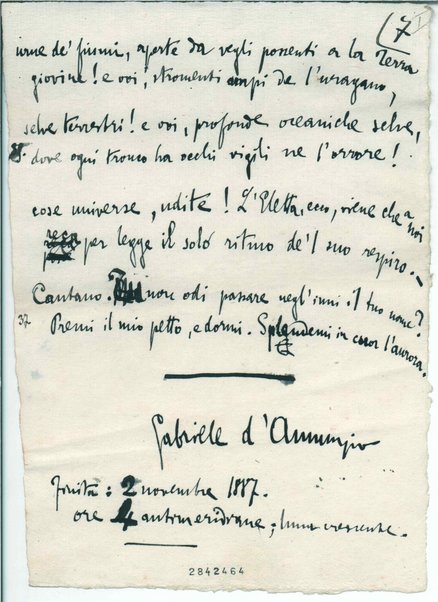 (7
urne de' fiumi, aperte da vegli possenti a la Terra
giovine! e voi, stromenti ampi de l'uragano,
selve terrestri! e voi, profonde oceaniche selve,
dove ogni tronco ha occhi vigili ne l'orrore!
cose universe, udite! L'Eletta, ecco, viene che a noi
reca per legge il solo ritmo de'l suo respiro. –
Cantano. Tu non odi passare negl'inni il tuo nome?
37 Premi il mio petto, e dormi. Splendemi in cuor l'aurora.
Gabriele d'Annunzio
Finita: 2 novembre 1887.
ore 4 antimeridiane; luna crescente.
2842464